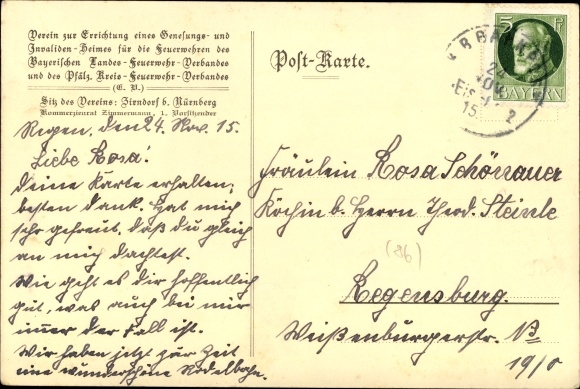 Verein zur Errichtung eines Genesungs- und
Invaliden-Heimes für die Feuerwehren des
Bayerischen Landes-Feuerwehr-Verbandes
und des Pfälz. Kreis-Feuerwehr-Verbandes
(E. V.)
Sitz des Vereins: Zirndorf b. Nürnberg
Kommerzienrat Zimmermann, 1. Vorsitzender
Post-Karte.
5 Pf
BAYERN
24
NOV
15
2
Regen, den 24. Nov. 15.
Liebe Rosa!
Deine Karte erhalten,
besten Dank. Hat mich
sehr gefreut, daß du gleich
an mich dachtest.
Wie geht es dir hoffentlich
gut, was auch bei mir
immer der Fall ist.
Wir haben jetzt zur Zeit
eine wunderschöne Rodelbahn.
Fräulein Rosa Schönauer
Köchin b. Herrn Theod. Steinle
(86)
Regensburg.
Weißenburgerstr.
19/0